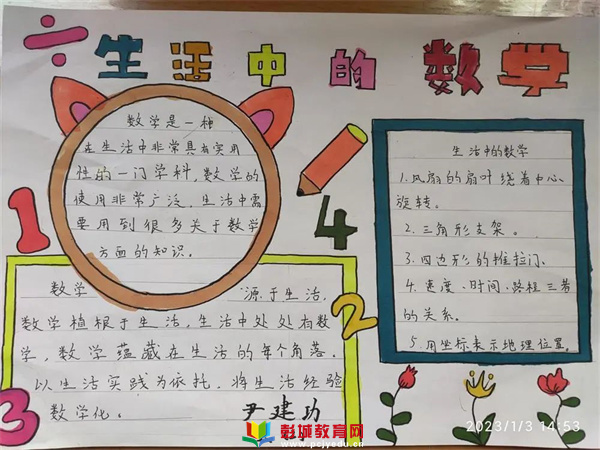 生活中的数学
数学是一种
在生活中非常具有实用
性的一门学科,数学的
使用非常广泛,生活中需
要用到很多关于数学
方面的知识。
1
4
生活中的数学
1.风扇的扇叶绕着中心
旋转。
2.三角形支架。
3.四边形的推拉门、
4.速度、时间、路程三者
的关系。
5.用坐标表示地理位置。
数学 源于生活,
数学植根于生活,生活中处处有数
学,数学蕴藏在生活的每个角落.
以生活实践为依托,将生活经验
数学化。
2
3
尹建功
彭城教育网
www.pcjyedu.cn
2023/1/3 14:53